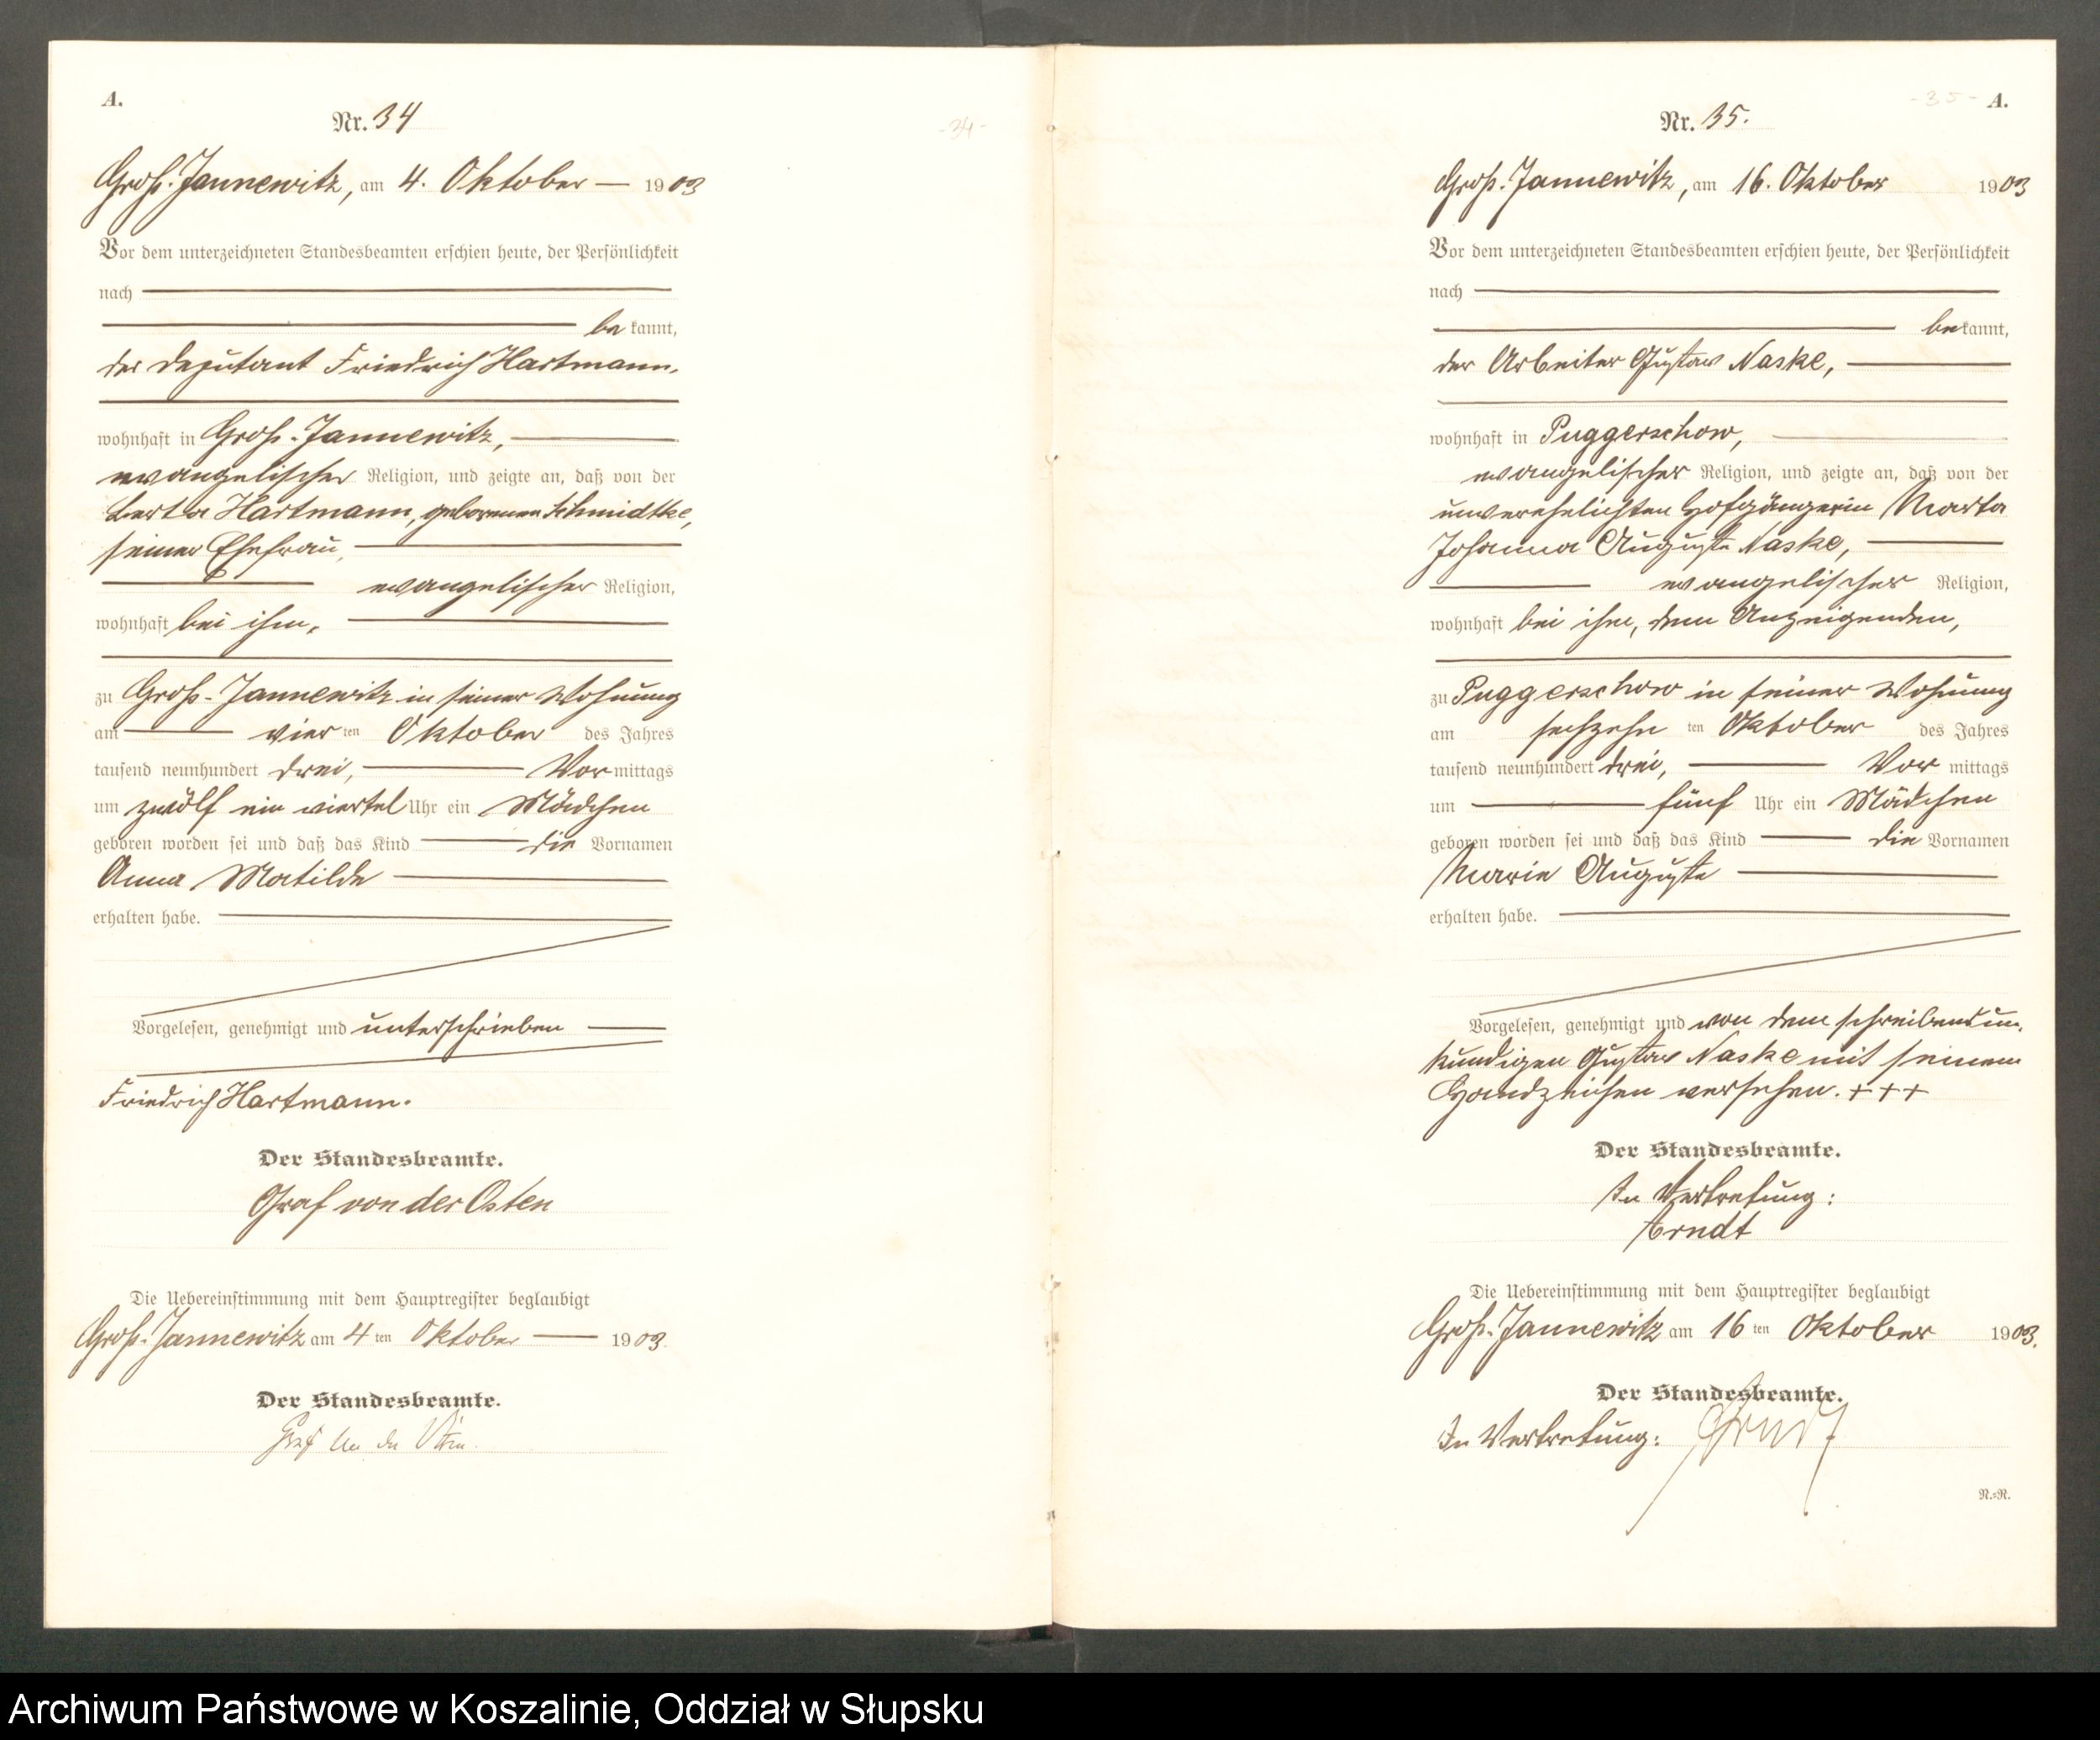 A.
Nr. 34
-34-
Groß-Jannewitz, am 4. Oktober 1903
Vor dem unterzeichneten Standesbeamten erschien heute, der Persönlichkeit
nach
be kannt,
der Deputant Friedrich Hartmann,
wohnhaft in Groß-Jannewitz,
evangelischer Religion, und zeigte an, daß von der
Berta Hartmann, geborenen Schmidtke,
seiner Ehefrau,
evangelischer Religion,
wohnhaft bei ihm,
zu Groß-Jannewitz in seiner Wohnung
am vier ten Oktober des Jahres
tausend neunhundert drei, Vor mittags
um zwölf ein viertel Uhr ein Mädchen
geboren worden sei und daß das Kind die Vornamen
Anna Matilde
erhalten habe.
Vorgelesen, genehmigt und unterschrieben
Friedrich Hartmann.
Der Standesbeamte.
Graf von der Osten
Die Uebereinstimmung mit dem Hauptregister beglaubigt
Groß-Jannewitz am 4 ten Oktober 1903.
Der Standesbeamte.
Graf von der Osten.
-35- A.
Nr. 35.
Groß-Jannewitz, am 16. Oktober 1903
Vor dem unterzeichneten Standesbeamten erschien heute, der Persönlichkeit
nach
be kannt,
der Arbeiter Gustav Naske,
wohnhaft in Puggerschow,
evangelischer Religion, und zeigte an, daß von der
unverehelichten Hofgängerin Marta
Johanna Auguste Naske,
evangelischer Religion,
wohnhaft bei ihm, dem Anzeigenden,
zu Puggerschow in seiner Wohnung
am sechzehn ten Oktober des Jahres
tausend neunhundert drei, Vor mittags
um fünf Uhr ein Mädchen
geboren worden sei und daß das Kind die Vornamen
Marie Auguste
erhalten habe.
Vorgelesen, genehmigt und von dem schreibensun-
kundigen Gustav Naske mit seinem
Handzeichen versehen. + + +
Der Standesbeamte.
In Vertretung:
Arndt
Die Uebereinstimmung mit dem Hauptregister beglaubigt
Groß-Jannewitz am 16 ten Oktober 1903.
Der Standesbeamte.
In Vertretung: Arndt
N.=R.
Archiwum Państwowe w Koszalinie, Oddział w Słupsku